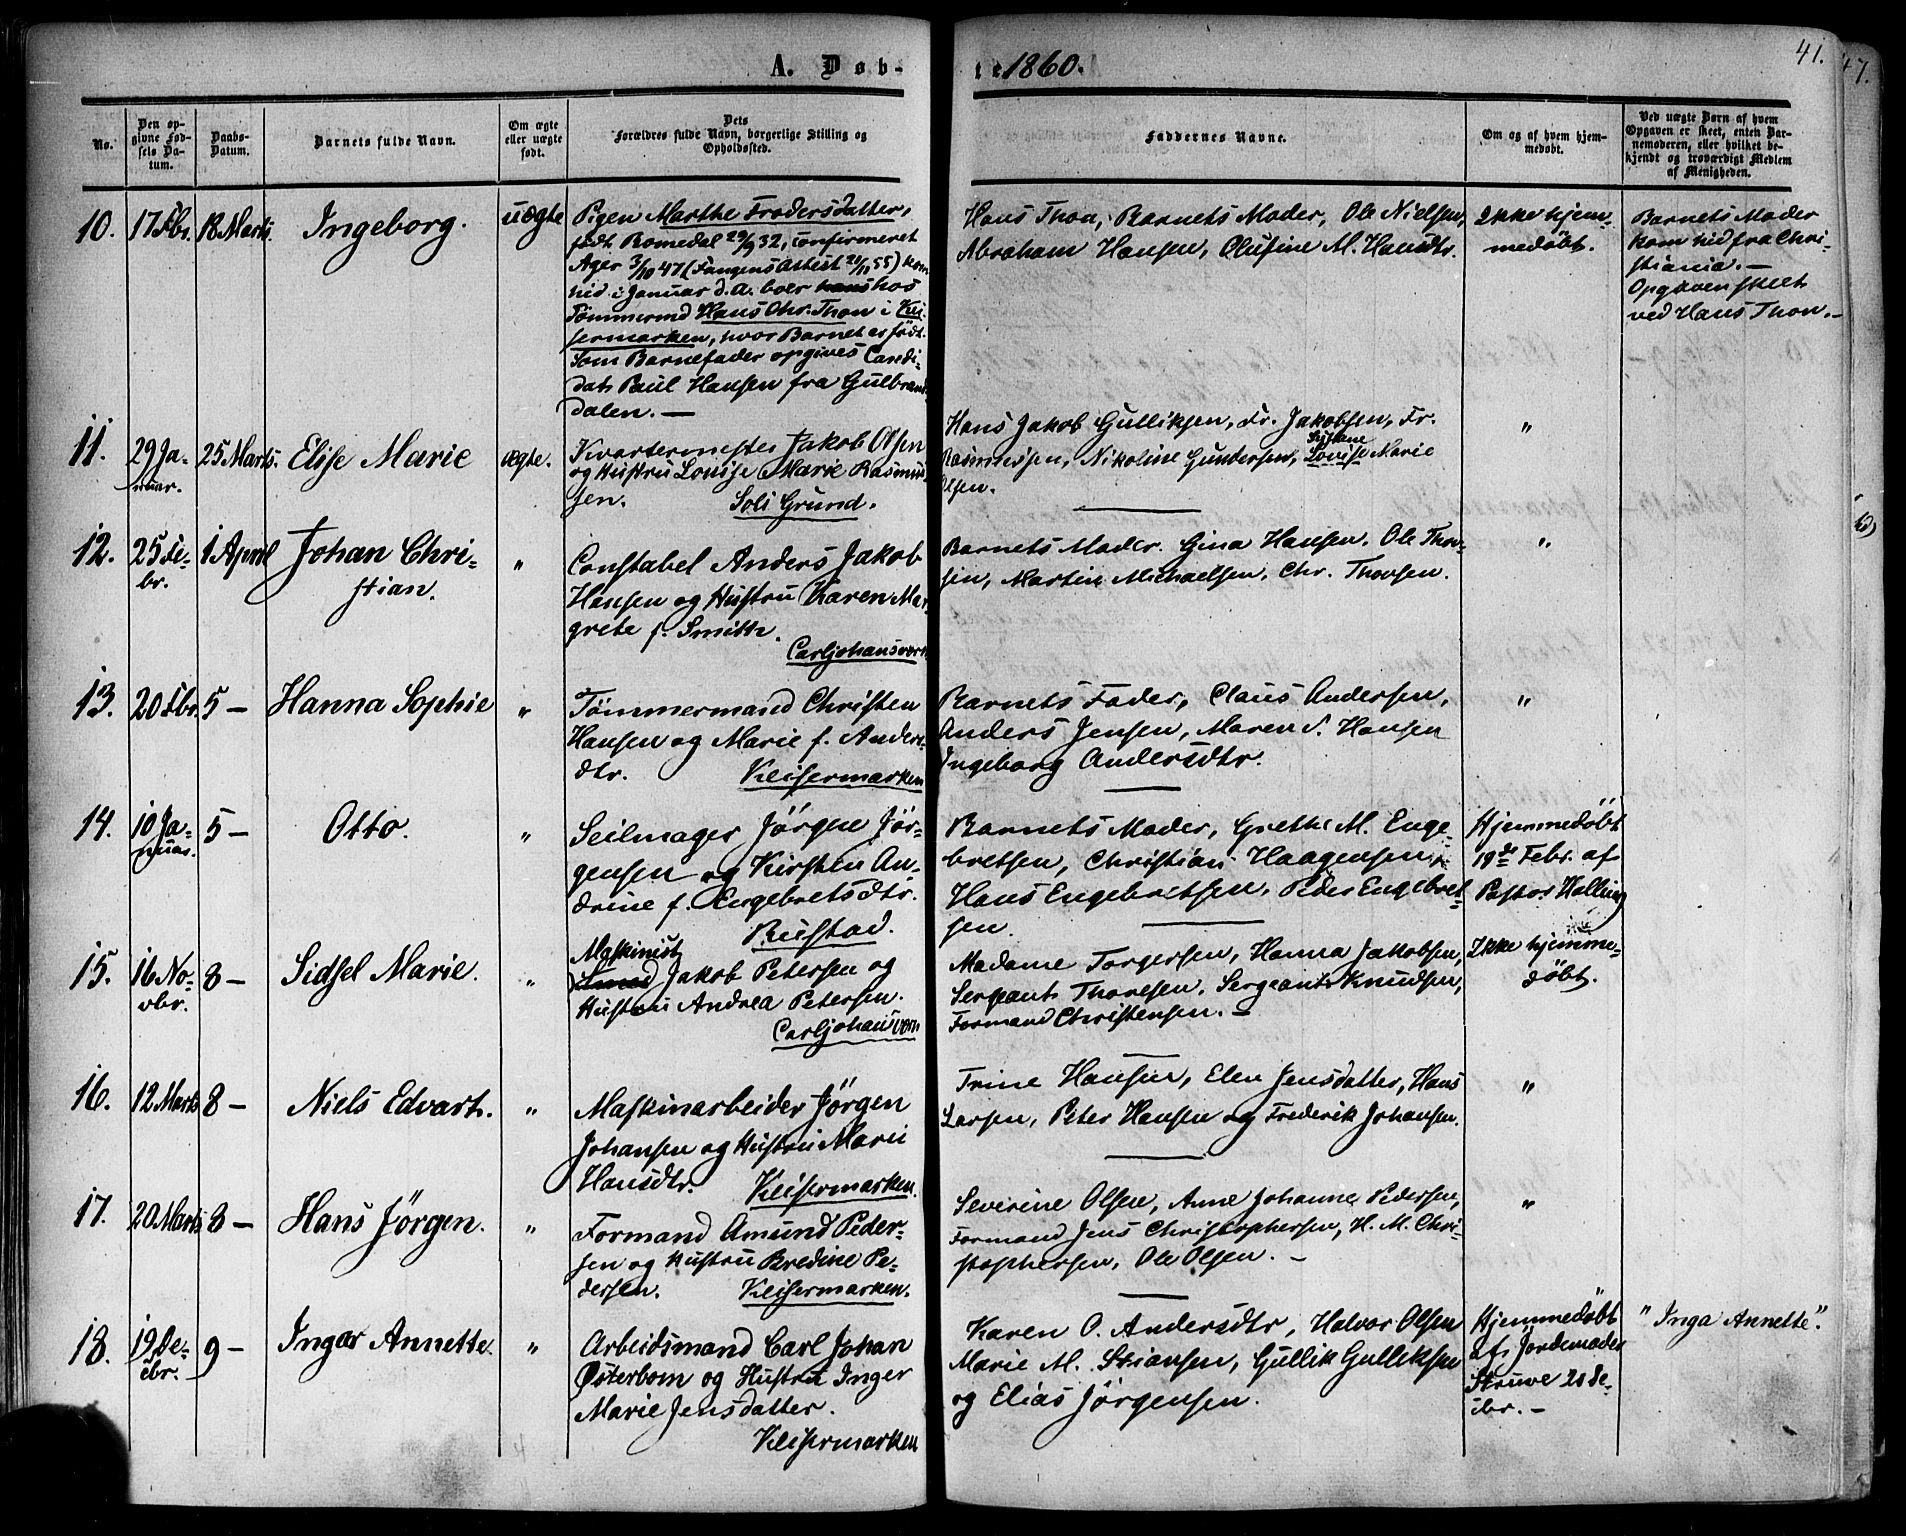 A. Døb-
te 1860.
41.
47.
No.
Den op-
givne Fød-
sels Da-
tum.
Daabs-
Datum.
Barnets fulde Navn.
Om ægte
eller uægte
født.
Dets
Forældres fulde Navn, borgerlige Stilling og
Opholdssted.
Faddernes Navne.
Om og af hvem hjem-
medøbt.
Ved uægte Børn af hvem
Opgaven er skeet, enten Bar-
nemoderen, eller hvilket be-
kjendt og troværdigt Medlem
af Menigheden.
10.
17 Fbr.
18 Marts.
Ingeborg.
uægte
Pigen Marthe Frodersdatter,
født Romedal 29/9 32, confirmeret
Ager 3/10 47 (Fangens Attest 21/11 55) kom
hid i Januar d. A. boer hos
Tømmermd Hans Chr. Thon i Kei-
sermarken, hvor Barnet er født.
Som Barnefader opgives Candi-
dat Paul Hansen fra Gulbrands-
dalen. —
Hans Thon, Barnets Moder, Ole Nielsen,
Abraham Hansen, Olufine M. Hansdtr.
Ikke hjem-
medøbt.
Barnets Moder
kom hid fra Chri-
stiania. —
Opgaven skeet
ved Hans Thon. —
11.
29 Ja-
nuar.
25 Marts.
Elise Marie
ægte.
Kvartermester Jakob Olsen
og Hustru Louise Marie Rasmus-
sen.
Soli Grund.
Hans Jakob Gulliksen, Fr. Jakobsen, Fr.
Rasmussen, Nikoline Gundersen, Louise Marie
Olsen.
"
12.
25 Fe-
br.
1 April
Johan Chri-
stian.
"
Constabel Anders Jakob
Hansen og Hustru Karen Mar-
grete f. Smith.
Carljohansværn
Barnets Moder. Gina Hansen. Ole Thor-
sen, Martin Michaelsen, Chr. Thorsen.
"
13.
20 Fbr.
5 —
Hanna Sophie
"
Tømmermand Christen
Hansen og Marie f. Anders-
dtr.
Keisermarken
Barnets Fader, Claus Andersen,
Anders Jensen, Maren S. Hansen
Ingeborg Andersdtr.
"
14.
10 Ja-
nuar.
5 —
Otto.
"
Seilmager Jörgen Jör-
gensen og Kirsten An-
drine f. Engebretsdtr.
Rustad.
Barnets Moder, Grethe M. Enge-
bretsen, Christian Haagensen,
Hans Engebretsen, Peder Engebret-
sen.
Hjemmedøbt
19de Febr. af
Pastor Halling
15.
16 No-
vbr.
8 —
Sidsel Marie.
"
Maskinist
Smed Jakob Petersen og
Hustru Andrea Petersen.
Carljohansværn
Madame Torgersen, Hanna Jakobsen,
Sergeant Thoresen, Sergeant Knudsen,
Formand Christensen. —
Ikke hjemme-
døbt.
16.
12 Marts
8 —
Niels Edvart.
"
Maskinarbeider Jörgen
Johansen og Hustru Marie
Hansdtr.
Keisermarken.
Trine Hansen, Elen Jensdatter, Hans
Larsen, Peter Hansen og Frederik Johansen.
"
17.
20 Marts
8 —
Hans Jörgen.
"
Formand Amund Peder-
sen og Hustru Bredine Pe-
dersen.
Keisermarken.
Severine Olsen, Anne Johanne Pedersen,
Formand Jens Christophersen, H. M. Chri-
stophersen, Ole Olsen. —
"
18.
19 De-
cbr.
9 —
Inger Annette.
"
Arbeidsmand Carl Johan
Østerbom og Hustru Inger
Marie Jensdatter.
Keisermarken
Karen O. Andersdtr, Halvor Olsen
Marie M. Stiansen, Gullik Gulliksen
og Elias Jörgensen.
Hjemmedøbt
af Jordemoder
Struve 20 De-
cbr. —
"Inga Annette".